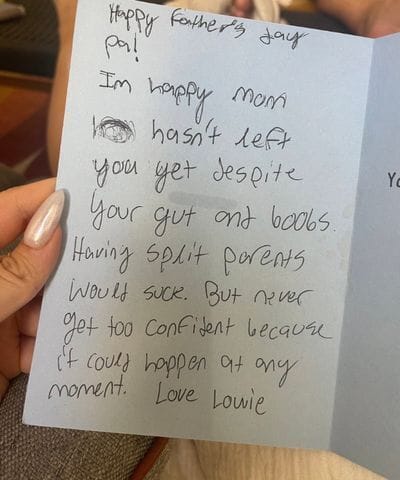 Happy Father's day
pa!
Im happy mom
hasn't left
you yet despite
your gut and boobs.
Having split parents
would suck. But never
get too confident because
it could happen at any
moment. Love Lowie